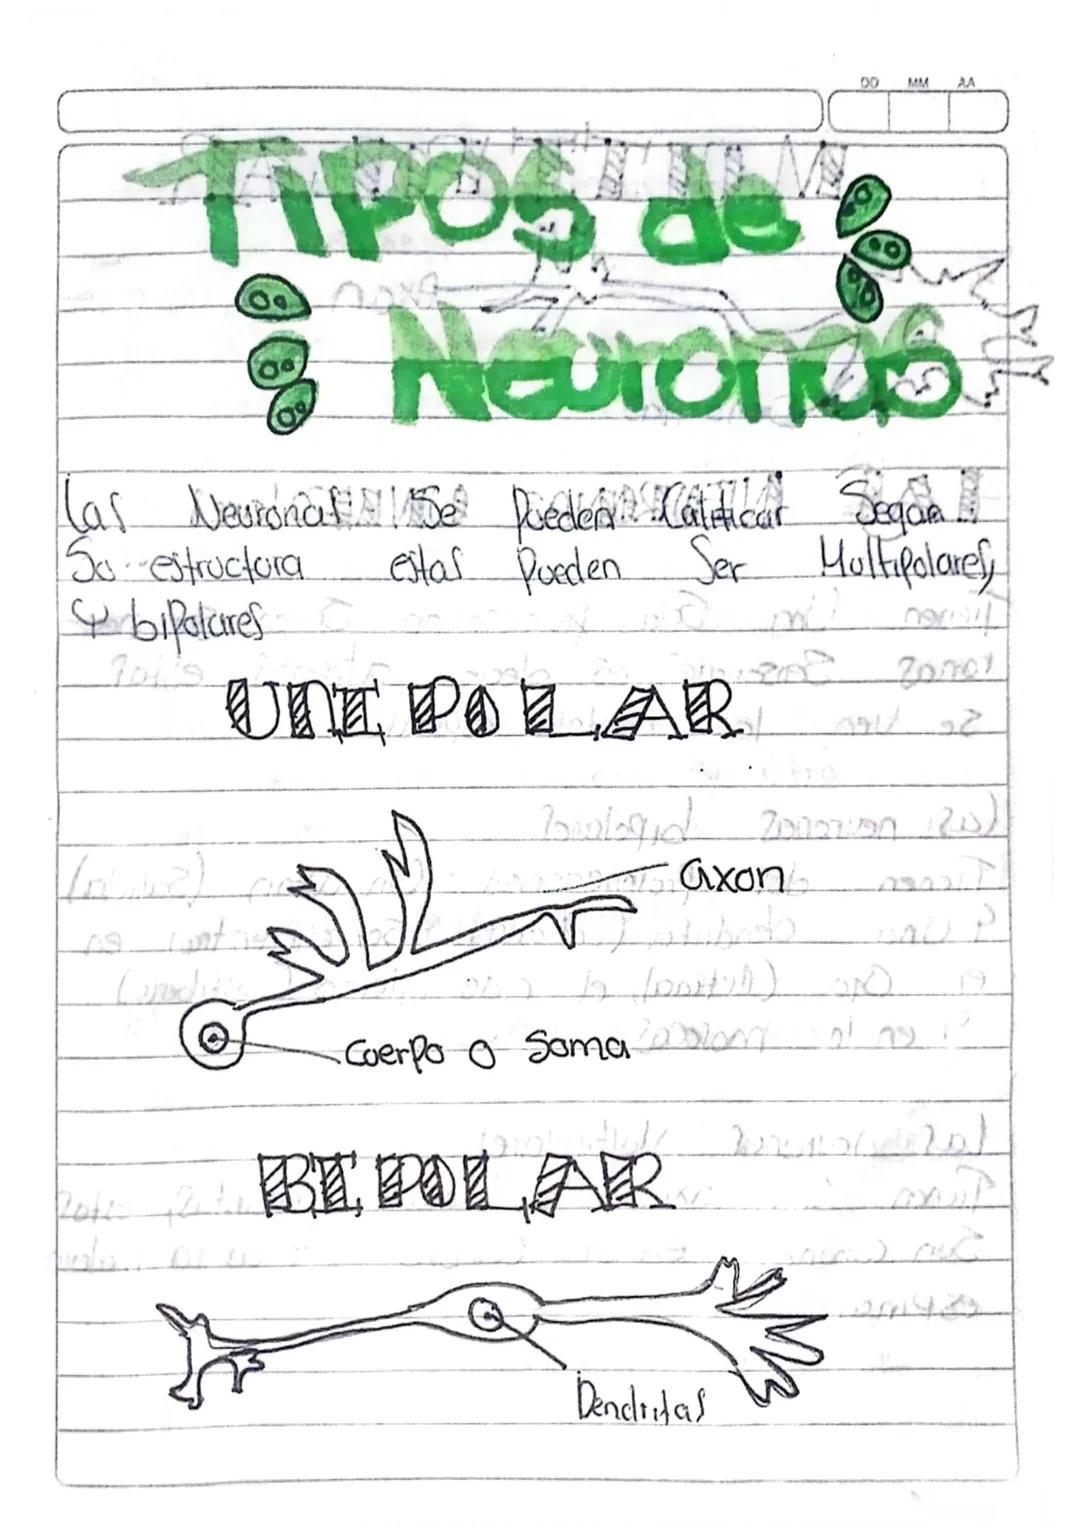 DD MM AA
Tipos de
Neuronas
las Neuronas Se Pueden Calificar Segun
Su estructura estas Pueden Ser Multipolares,
Y biPolares
UNIPOLAR
axon
Cuerpo o Soma
BIPOLAR
Dendritas